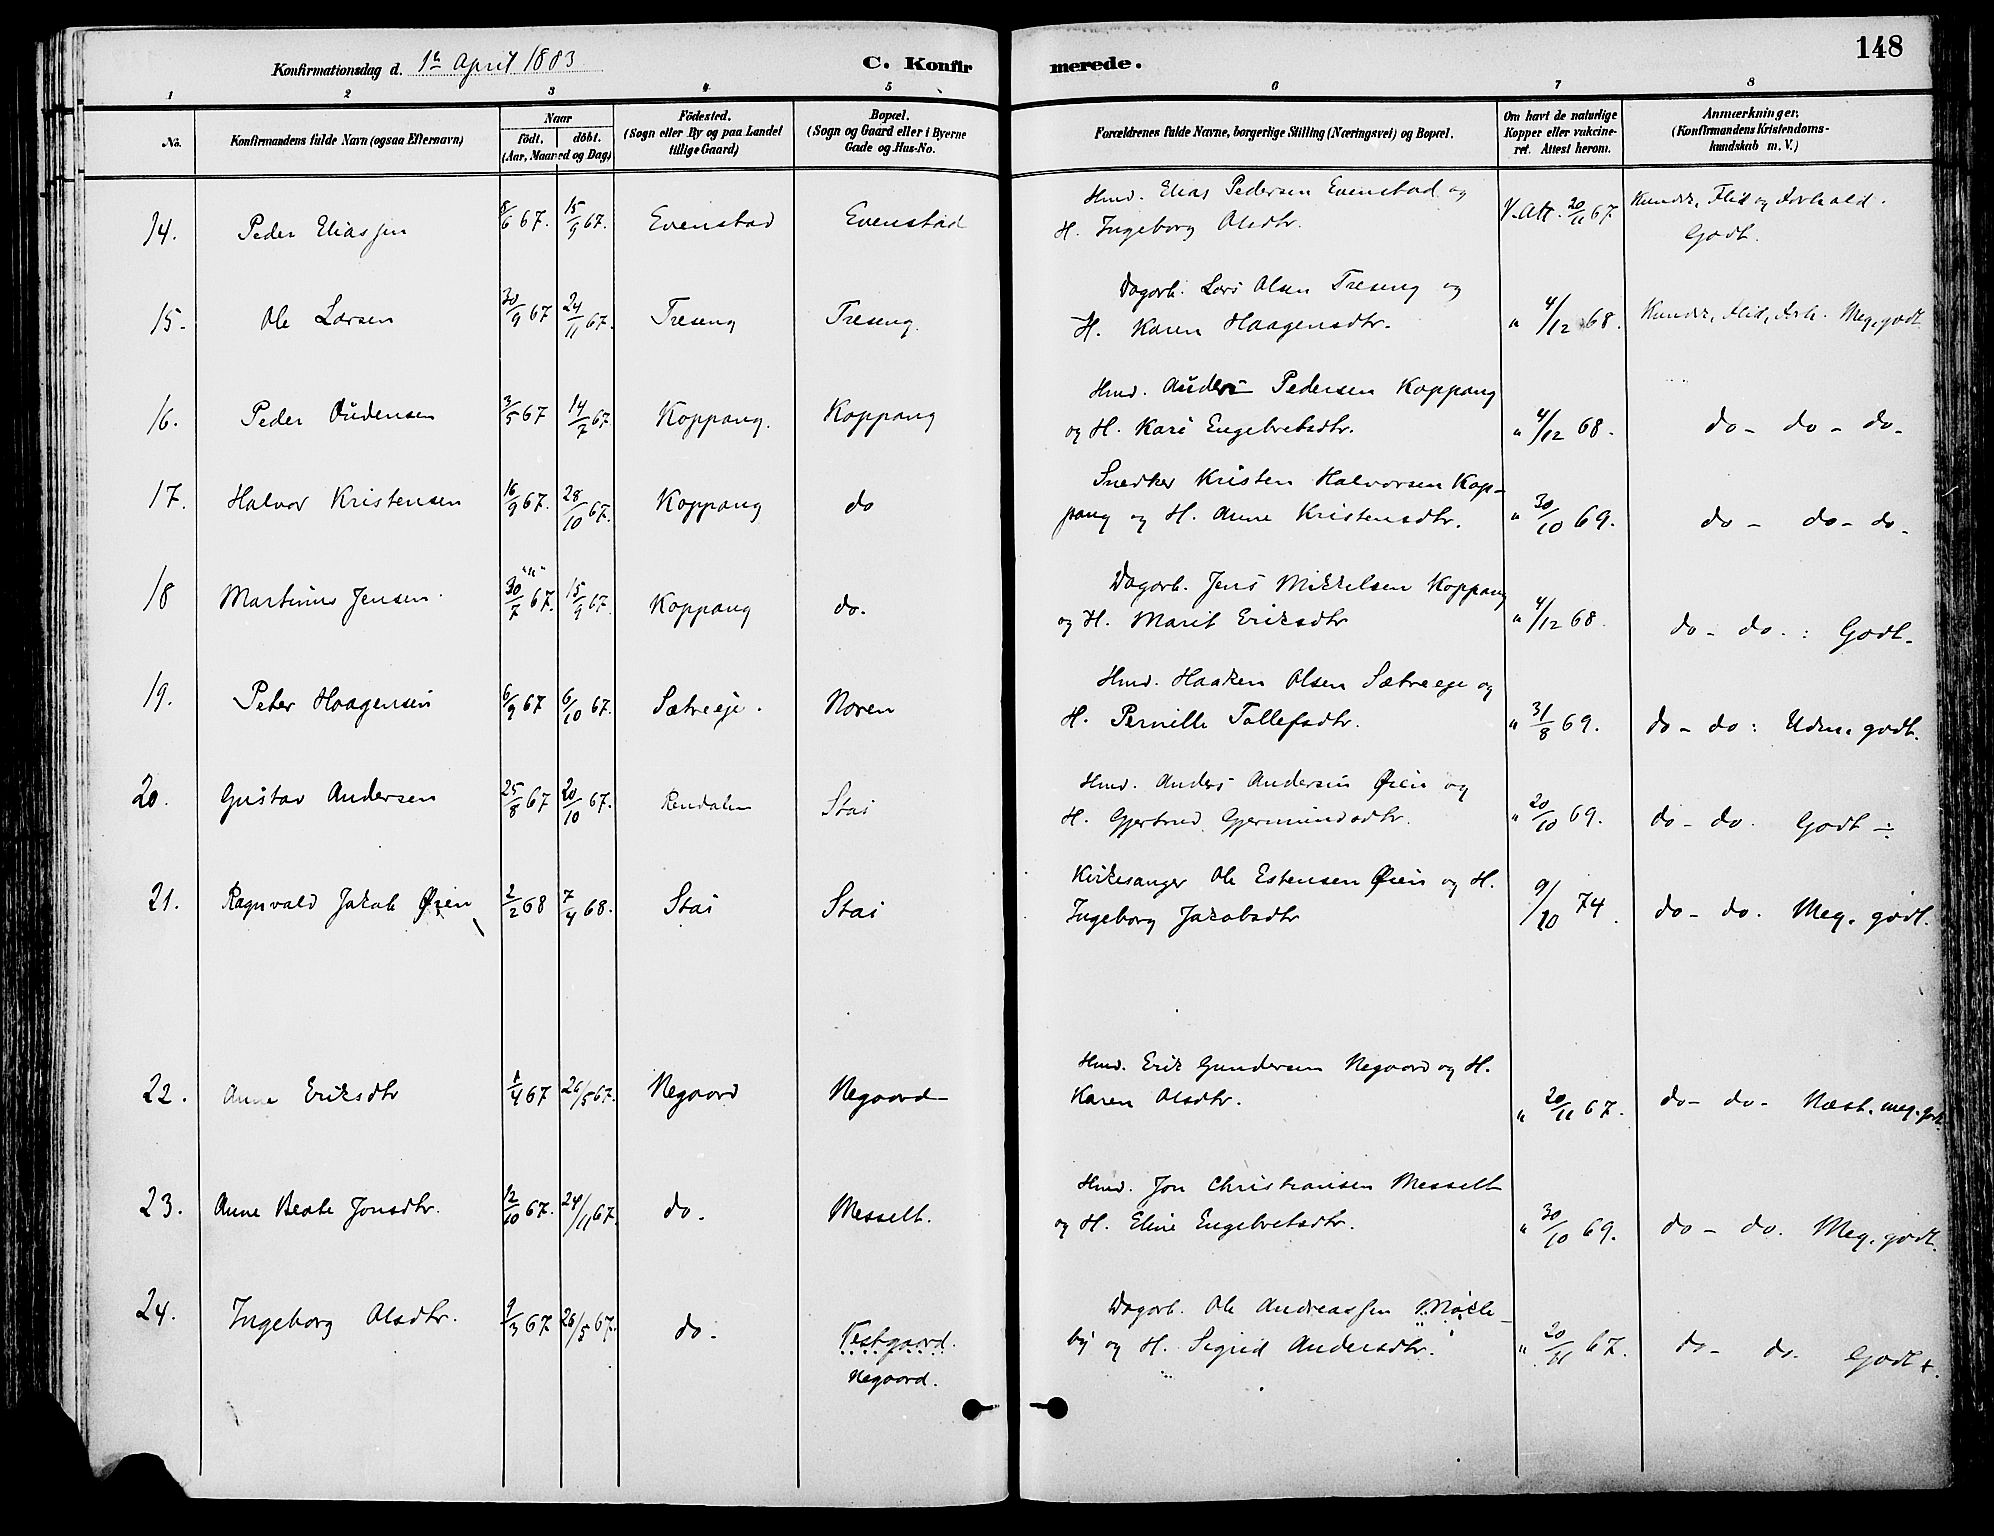 148
Konfirmationsdag d. 1ste April 1883 C. Konfirmerede.
1 2 3 4 5 6 7 8
No. Konfirmandens fulde Navn (ogsaa Efternavn) Naar födt, döbt. (Aar, Maaned og Dag) Födested. (Sogn eller By og paa Landet tillige Gaard) Bopæl. (Sogn og Gaard eller i Byerne Gade og Hus-No. Forældrenes fulde Navne, borgerlige Stilling (Næringsvei) og Bopæl. Om havt de naturlige Kopper eller vakcineret. Attest herom. Anmærkninger. (Konfirmandens Kristendomskundskab m. V.)
14. Peder Eliassen 8/6 67. 15/9 67. Evenstad Evenstad Hmd. Elias Pedersen Evenstad og H. Ingeborg Olsdtr. V. Att. 20/11 67 Kundsk, Flid og Forhold. Godt.
15. Ole Larsen 30/9 67 24/11 67. Treseng Treseng. Dagarb. Lars Olsen Treseng og H. Karen Haagensdtr. " 4/12 68. Kundsk, Flid, Forh. Meg. godt
16. Peder Oudensen 3/5 67 14/7 67 Koppang. Koppang Hmd. Auden Pedersen Koppang og H. Kari Engebretsdtr. " 4/12 68. do - do - do -
17. Halvor Kristensen 16/9 67. 28/10 67. Koppang do Snedker Kristen Halvorsen Koppang og H. Anne Kristensdtr. " 30/10 69. do - do - do -
18 Martinus Jensen. 30/7 67. 15/9 67. Koppang do. Dagarb. Jens Mikkelsen Koppang og H. Marit Eriksdtr " 4/12 68. do - do. : Godt -
19. Peter Haagensen 6/9 67 6/10 67. Sætreeje. Noren Hmd. Haaken Olsen Sætreeje og H. Pernille Tollefsdtr. " 31/8 69. do - do : Udm. godt.
20. Gustav Andersen 25/8 67 20/10 67. Rendalen Stai Hmd. Anders Andersen Øien og H. Gjertrud Gjermundsdtr. " 20/10 69. do - do. Godt ÷
21. Ragnvald Jakob Øien 2/2 68 7/4 68. Stai Stai Kirkesanger Ole Estensen Øien og H. Ingeborg Jakobsdtr 9/10 74. do - do. Meg. godt.
22. Anne Eriksdtr 1/4 67 26/5 67. Negaard Negaard - Hmd. Erik Gundersen Negaard og H. Karen Olsdtr. " 20/11 67. do - do - Næst. meg. godt.
23. Anne Beate Jonsdtr. 12/10 67. 24/11 67. do. Messelt. Hmd. Jon Christiansen Messelt og H. Eline Engebretsdtr. " 30/10 69. do - do. Meg. godt.
24. Ingeborg Olsdtr. 9/3 67 26/5 67. do. Vestgaard. Negaard. Dagarb. Ole Andreassen Møkleby og H. Sigrid Andersdtr. " 20/11 67. do - do. Godt +.